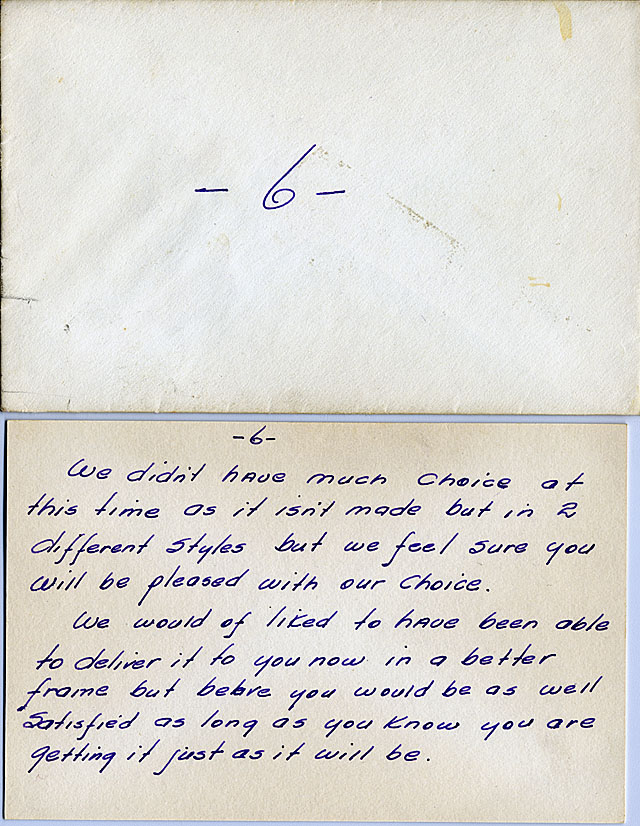 - 6 -
-6-
We didn't have much choice at
this time as it isn't made but in 2
different styles but we feel sure you
will be pleased with our choice.
We would of liked to have been able
to deliver it to you now in a better
frame but beleive you would be as well
satisfied as long as you know you are
getting it just as it will be.